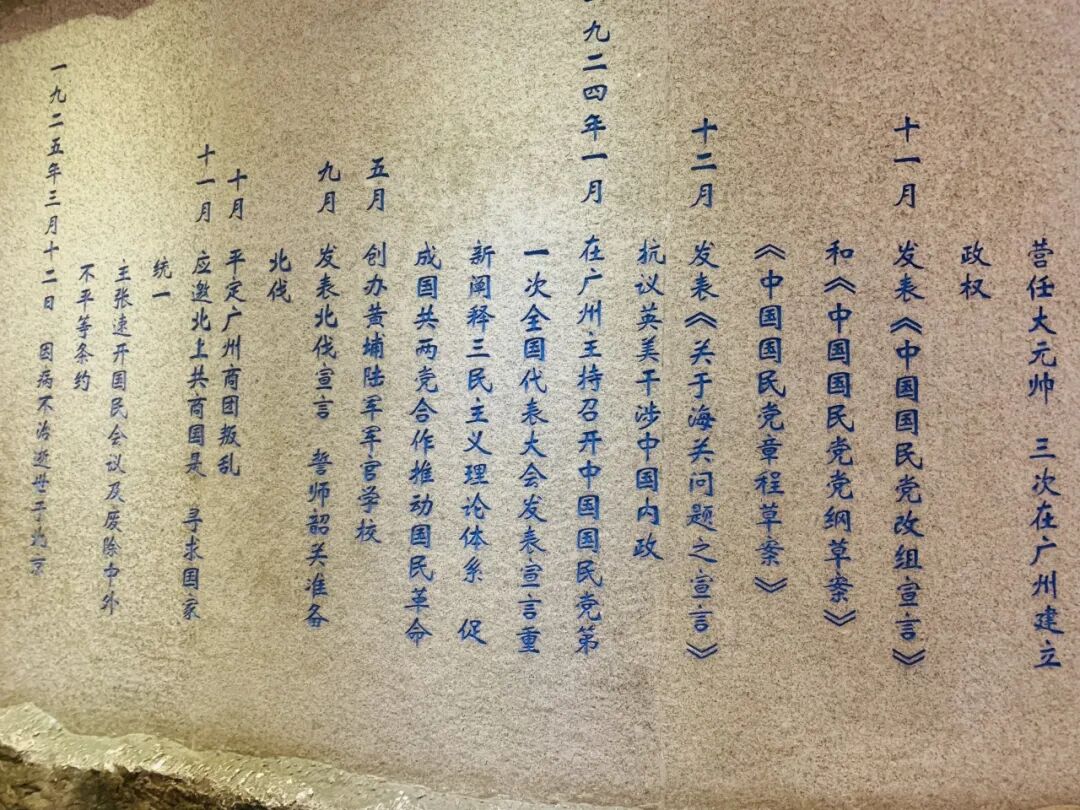 营任大元帅 三次在广州建立
政权
十一月 发表《中国国民党改组宣言》
和《中国国民党党纲草案》
《中国国民党章程草案》
十二月 发表《关于海关问题之宣言》
抗议英美干涉中国内政
九二四年一月 在广州主持召开中国国民党第
一次全国代表大会发表宣言重
新阐释三民主义理论体系 促
成国共两党合作推动国民革命
五月 创办黄埔陆军军官学校
九月 发表北伐宣言 誓师韶关准备
北伐
十月 平定广州商团叛乱
十一月 应邀北上共商国是 寻求国家
统一
主张速开国民会议及废除中外
不平等条约
一九二五年三月十二日 因病不治逝世于北京